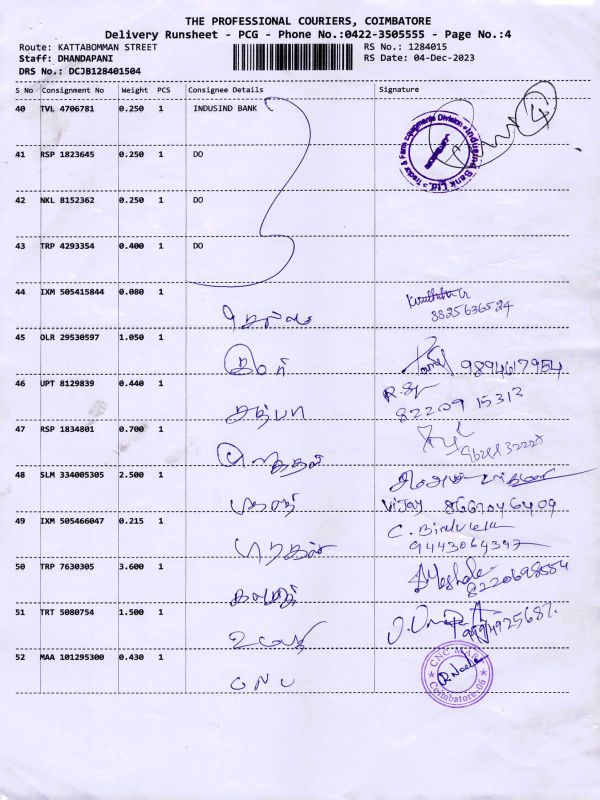 THE PROFESSIONAL COURIERS, COIMBATORE
Delivery Runsheet - PCG - Phone No.:0422-3505555 - Page No.:4
Route: KATTABOMMAN STREET
RS No.: 1284015
Staff: DHANDAPANI
RS Date: 04-Dec-2023
DRS No.: DCJB128401504
S No Consignment No Weight PCS Consignee Details Signature
40 TVL 4706781 0.250 1 INDUSIND BANK
4
Tractor & Farm Equipments Division * IndusInd Bank Ltd. *
41 RSP 1823645 0.250 1 DO
42 NKL 8152362 0.250 1 DO
43 TRP 4293354 0.400 1 DO
44 IXM 505415844 0.080 1
8825636524
45 OLR 29530597 1.050 1
9894617954
46 UPT 8129839 0.440 1
82209 15313
சத்யா
47 RSP 1834801 0.700 1
48 SLM 334005305 2.500 1
Vijay 8667046409
49 IXM 505466047 0.215 1
9443064397
50 TRP 7630305 3.600 1
8220698554
51 TRT 5080754 1.500 1
9994925687
52 MAA 101295300 0.430 1
CNC
CNC MARK
Coimbatore-06